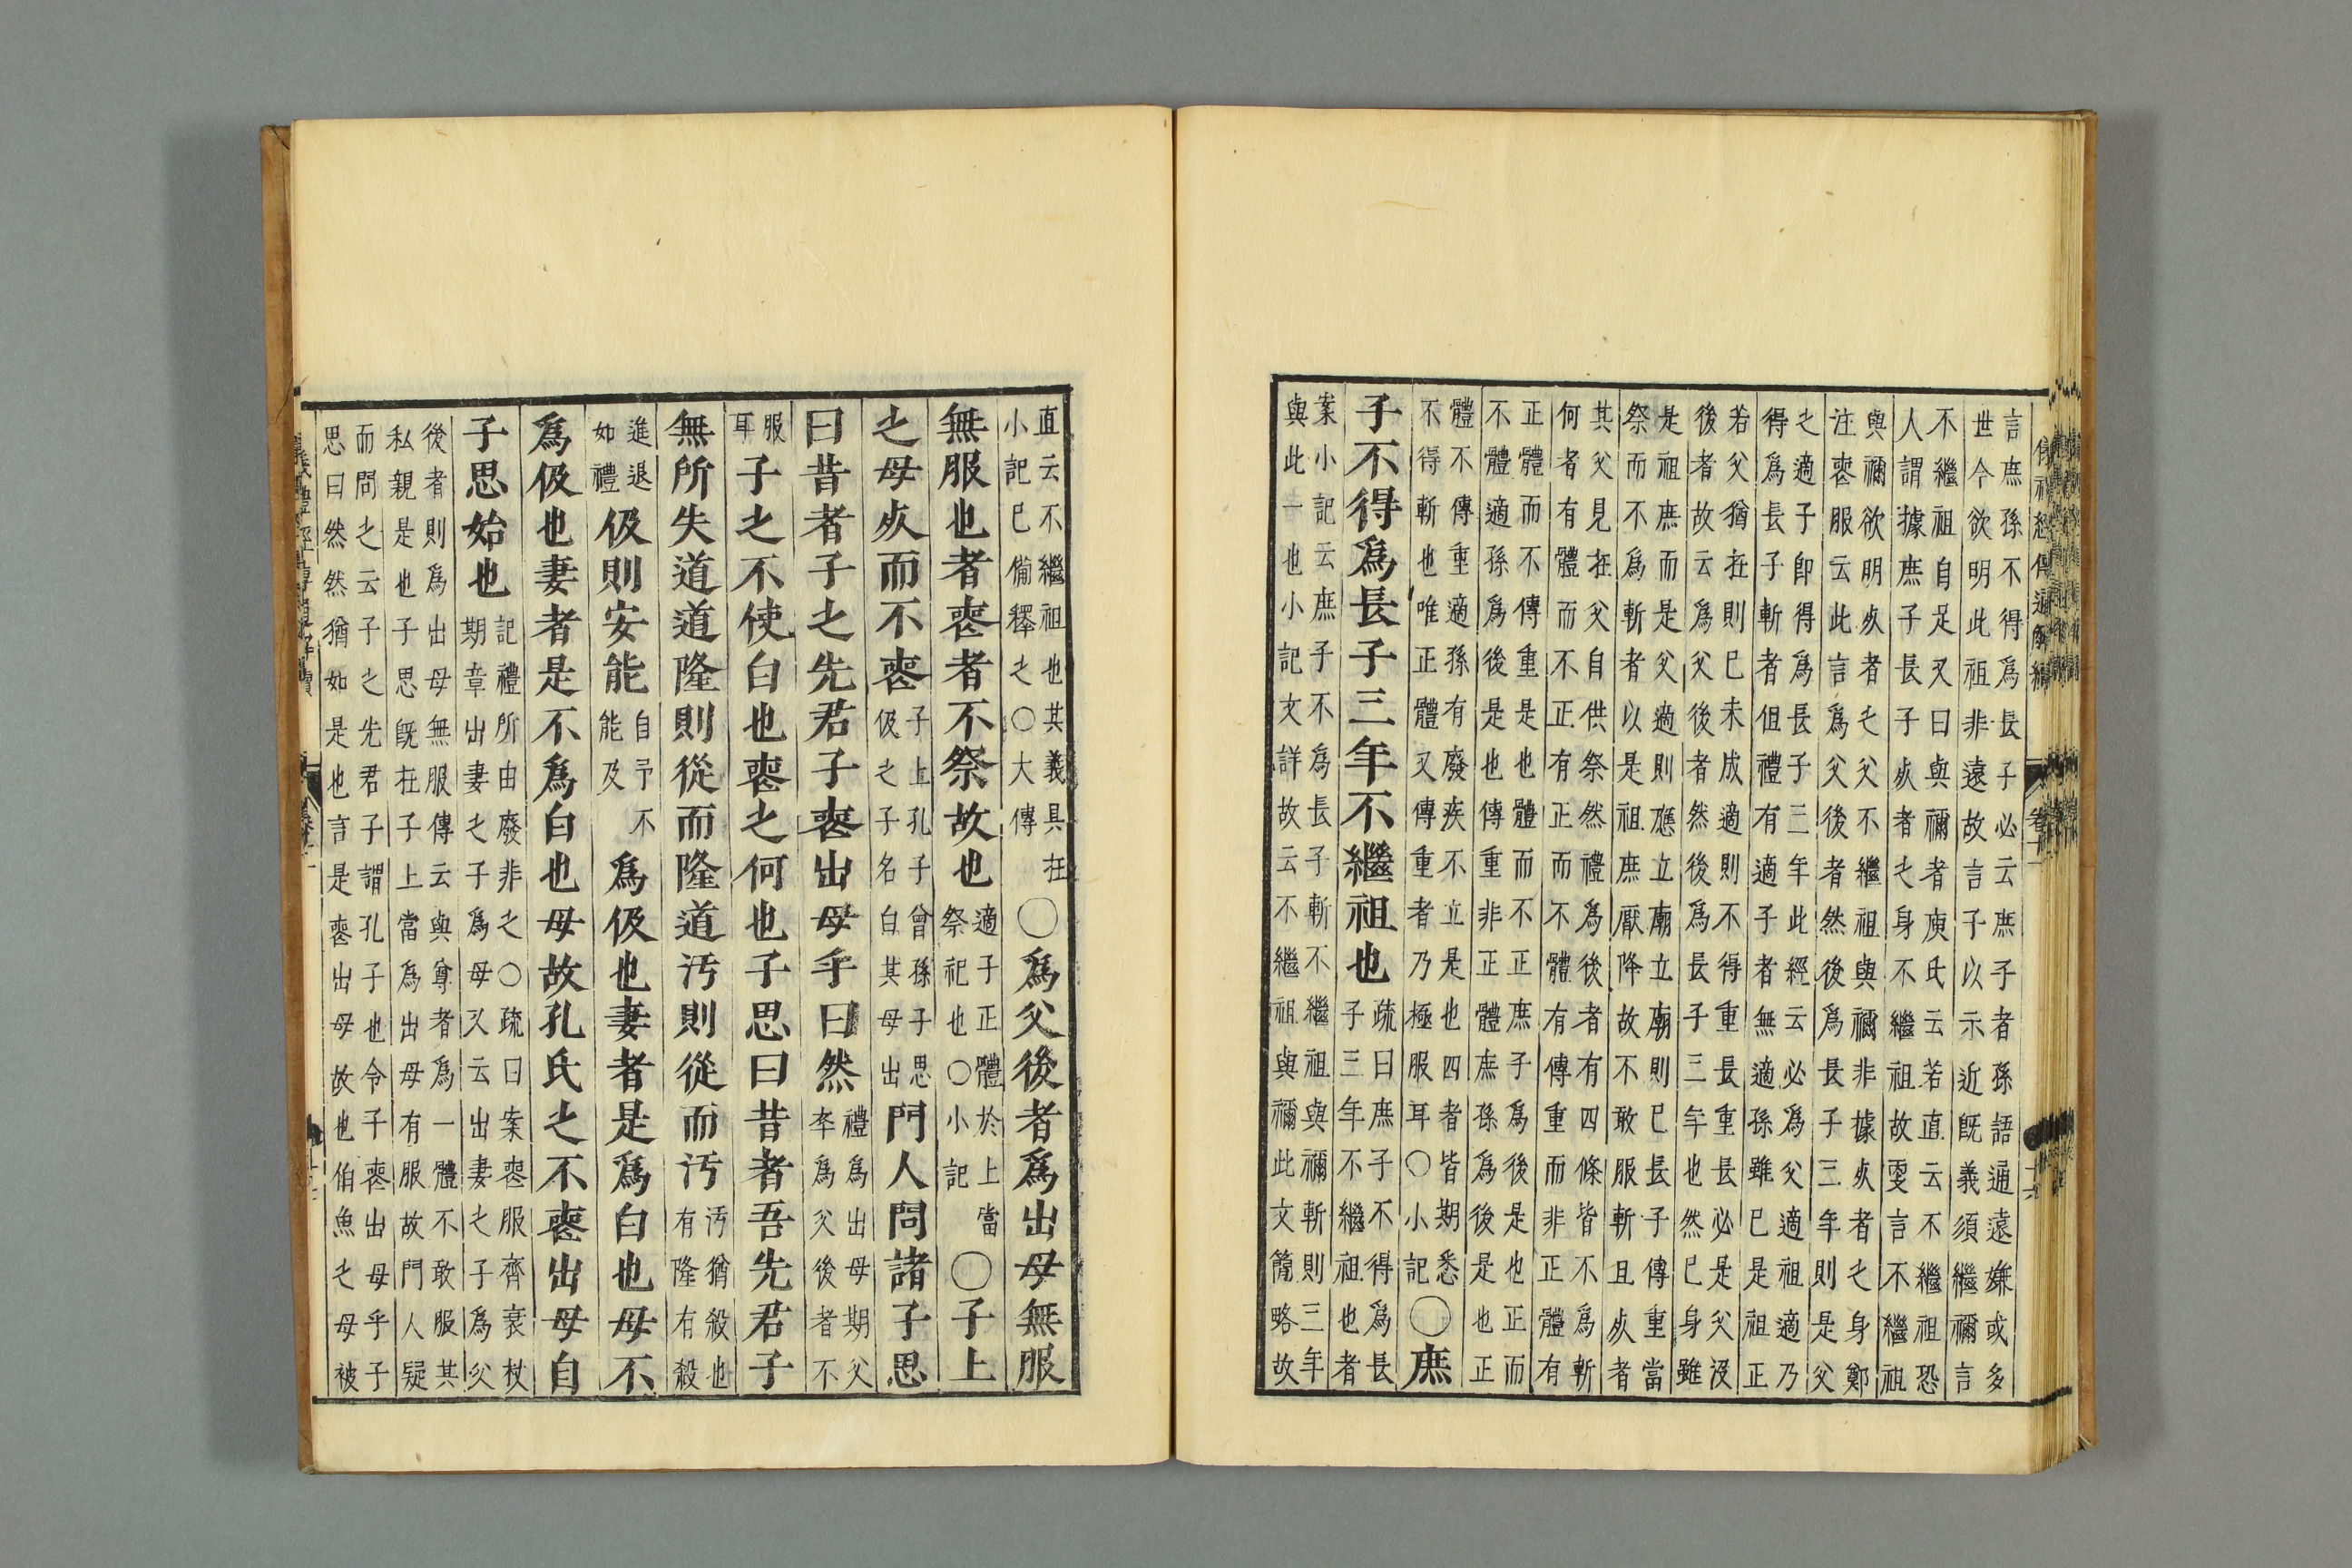 儀禮經傳通解續 卷十一 十六
言庶孫不得爲長子必云庶子者孫語通遠嫌或多
世今欲明此祖非遠故言子以示近旣義須繼禰言
不繼祖自足又曰與禰者庾氏云若直云不繼祖恐
人謂據庶子長子死者之身不繼祖故言不繼祖
與禰欲明死者之父不繼祖與禰非據死者之身鄭
注喪服云此言爲父後者然後爲長子三年則是父
之適子即得爲長子三年此經云必爲父適祖適乃
得爲長子斬者但禮有適子者無適孫雖巳是祖正
若父猶在則巳未成適則不得重長重長必是父沒
後者故云爲父後者然後爲長子三年也然巳身雖
是祖庶而是父適則應立廟立廟則巳長子傳重當
祭而不爲斬者以是祖庶厭降故不敢服斬且死者
其父見在父自供祭然禮爲後者有四條皆不爲斬
何者有體而不正有正而不體有傳重而非正體有
正體而不傳重是也體而不正庶子爲後是也正而
不體適孫爲後是也傳重非正體庶孫爲後是也正
體不傳重適孫有廢疾不立是也四者皆期悉
不得斬也唯正體又傳重者乃極服耳○小記
○庶
子不得爲長子三年不繼祖也
疏曰庶子不得爲長
子三年不繼祖也者
案小記云庶子不爲長子斬不繼祖與禰斬則三年
與此一也小記文詳故云不繼祖與禰此文簡略故
直云不繼祖也其義具在
小記巳備釋之○大傳
○爲父後者爲出母無服
無服也者喪者不祭故也
適子正體於上當
祭祀也○小記
○子上
之母死而不喪
子上孔子曾孫子思
伋之子名白其母出
門人問諸子思
曰昔者子之先君子喪出母乎曰然
禮爲出母期父
卒爲父後者不
服
耳
子之不使白也喪之何也子思曰昔者吾先君子
無所失道道隆則從而隆道汚則從而汚
汚猶殺也
有隆有殺
進退
如禮
伋則安能
自予不
能及
爲伋也妻者是爲白也母不
爲伋也妻者是不爲白也母故孔氏之不喪出母自
子思始也
記禮所由廢非之○疏曰案喪服齊衰杖
期章出妻之子爲母又云出妻之子爲父
後者則爲出母無服傳云與尊者爲一體不敢服其
私親是也子思旣在子上當爲出母有服故門人疑
而問之云子之先君子謂孔子也令子喪出母乎子
思曰然然猶如是也言是喪出母故也伯魚之母被